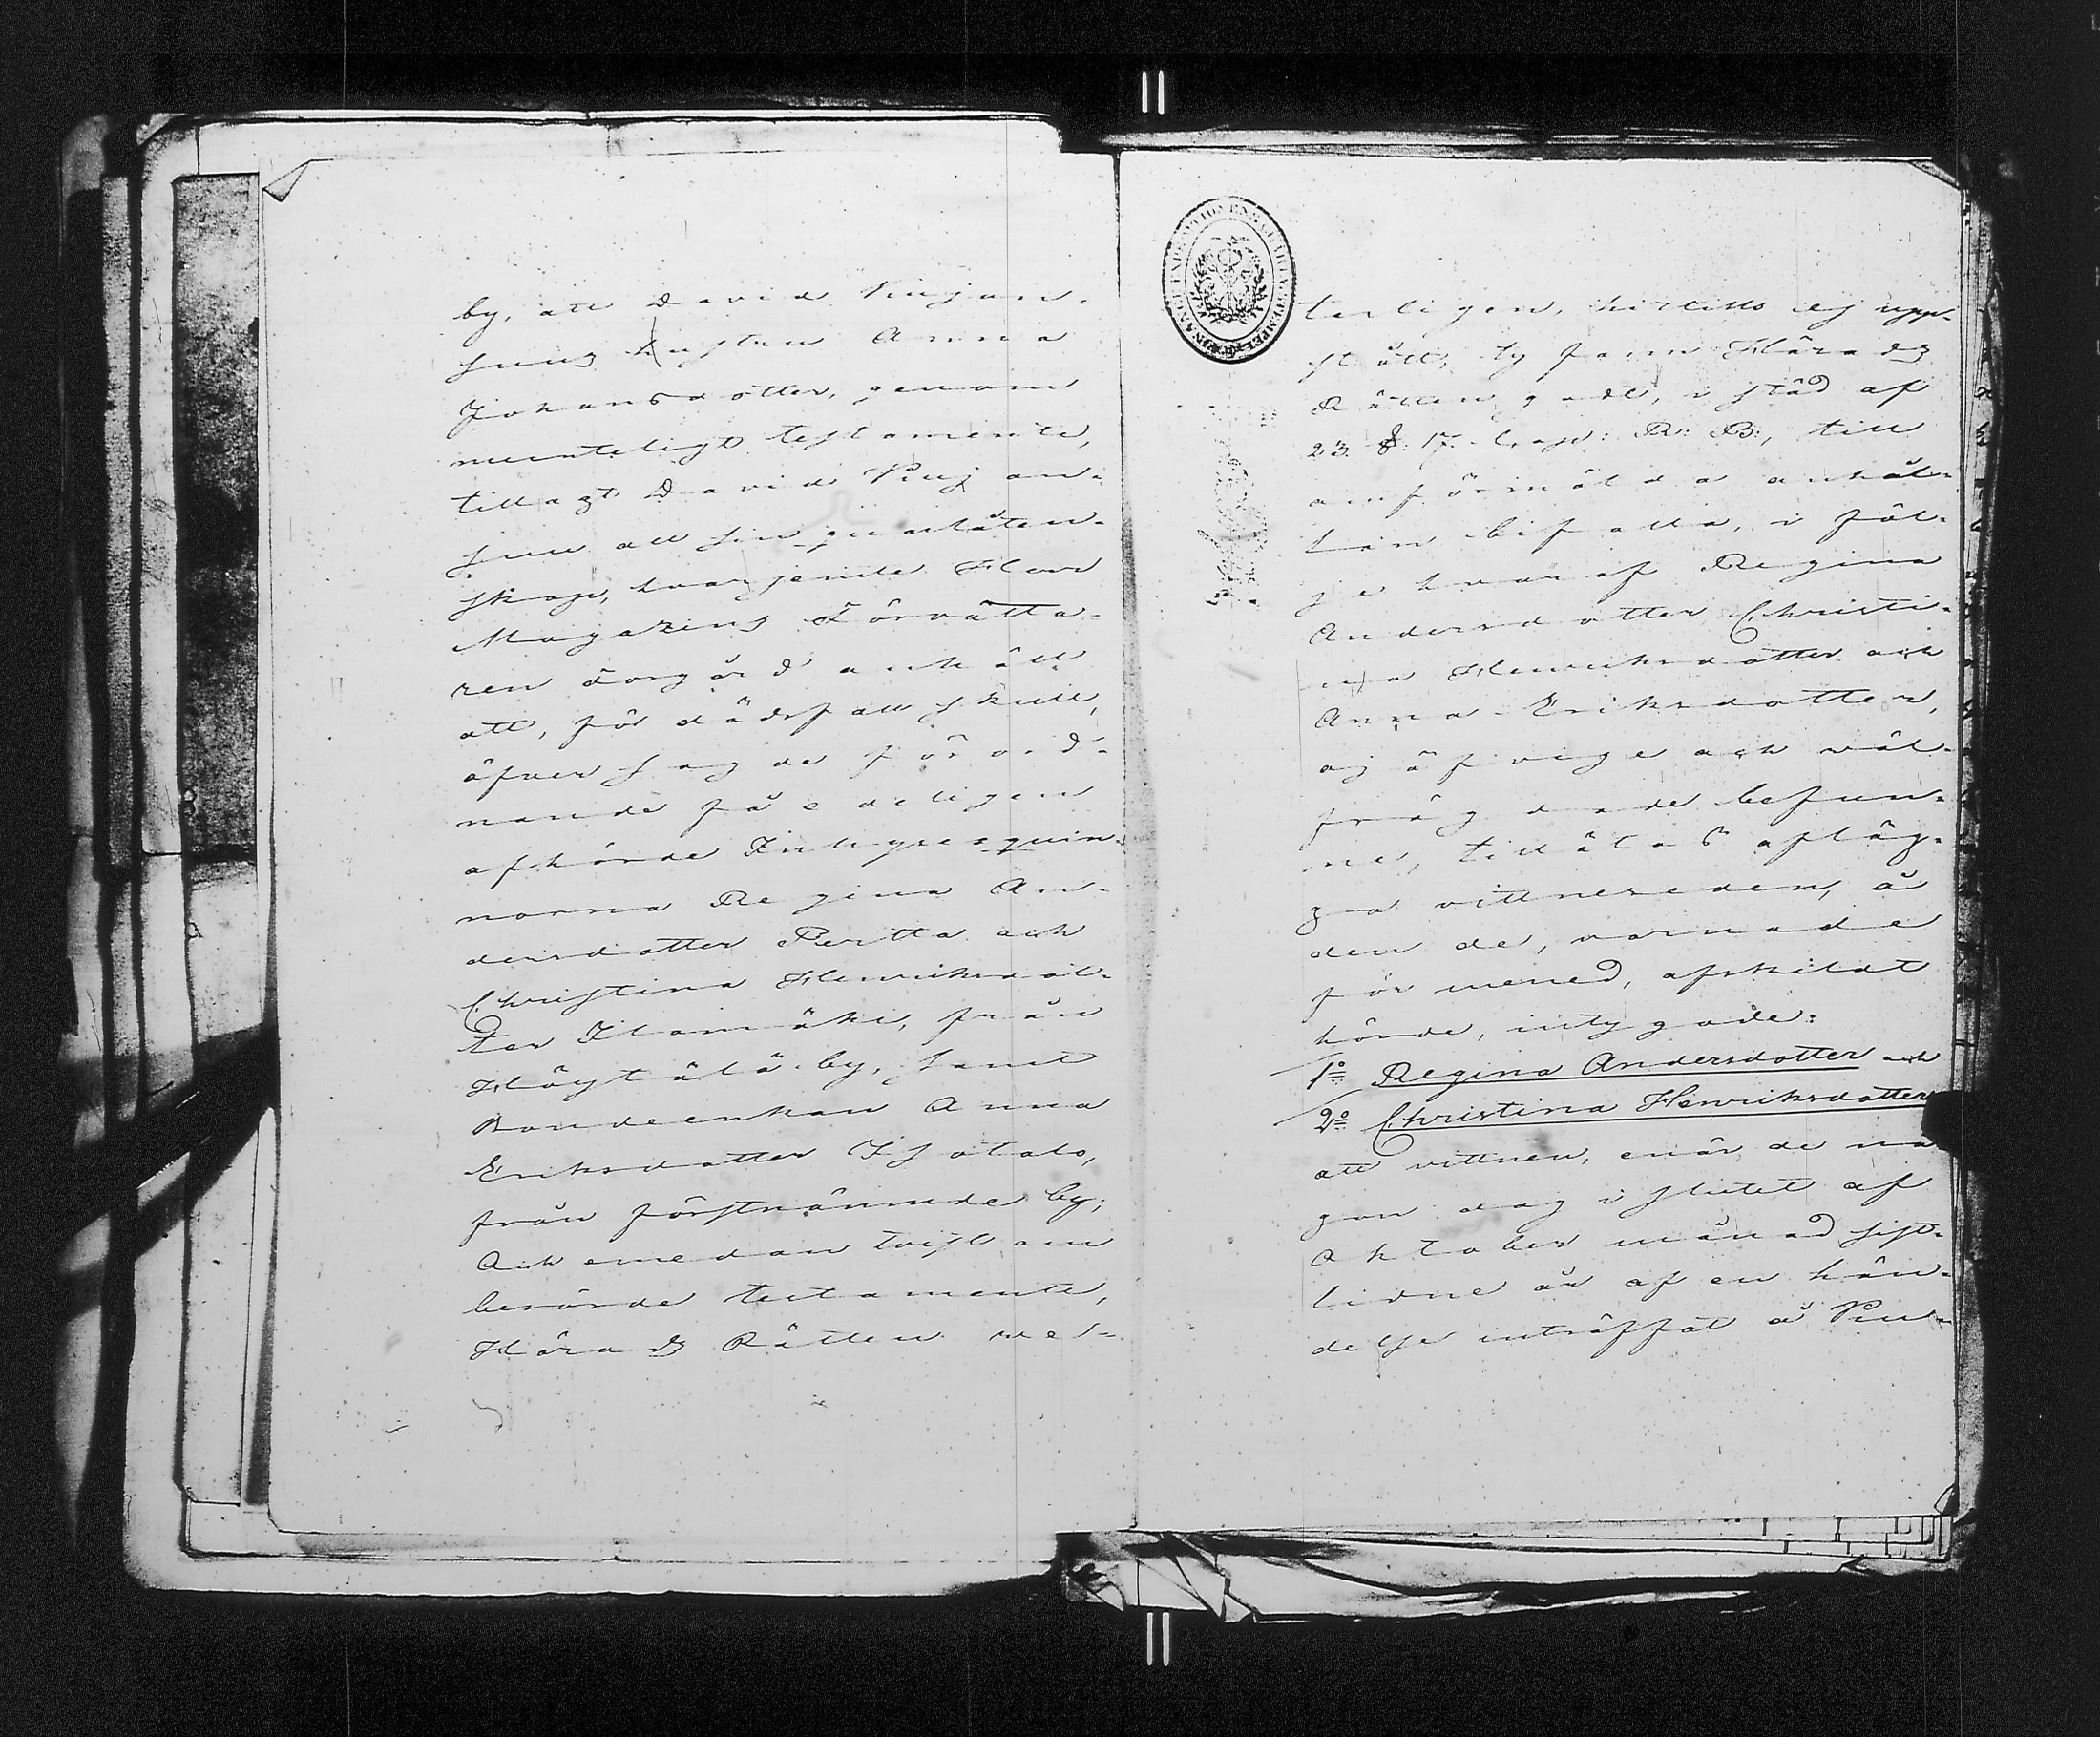 by, att David Pinjan-
sens hustru Anna
Johansdotter, genom
munteligt testamente,
tillagt David Pinjan-
sen all sin qvarlåten-
skap, hvarjemte Herr
Magazins Förvalta-
ren Forgård anhöll
att, för dödsfall skull,
öfver sagde förord-
nande få edeligen
afhörde Inhysesqvin-
norna Regina An-
dersdotter Pertta och
Christina Henriksdot-
ter Ilamäki, från
Höytälä by, samt
Bondeenkan Anna
Eriksdotter Isotalo,
från förstnämnde by;
Och emedan tvist om
berörde testamente,
Härads Rätten vet-
terligen, hittills ej upp-
stått, ty fann Härads
Rätten godt, i stöd af
23 § 17 Cap: R: B:, till
omförmälda anhål-
lan bifalla, i föl-
je hvaraf Regina
Andersdotter, Christi-
na Henriksdotter och
Anna Eriksdotter,
ojäfvige och väl-
frägdade befun-
ne, tillätos afläg-
ga vittneseden, å
den de, varnade
för mened, afskildt
hörde, intygade:
1º Regina Andersdotter och
2º Christina Henriksdotter
att vittnen, enär de nå
gon dag i slutet af
Oktober månad sist-
lidne år af en hän-
delse inträffat å Pin-